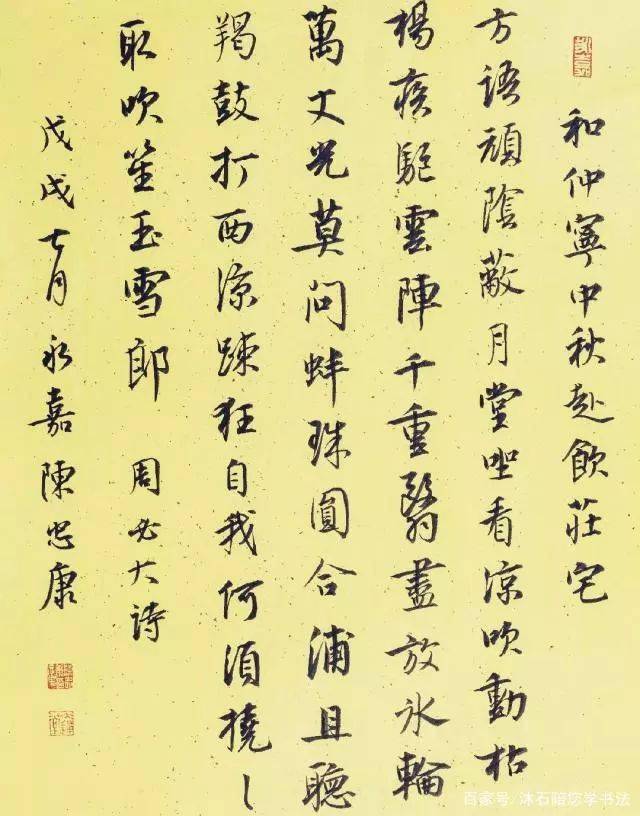 和仲寧中秋赴飲莊宅
方語頑陰蔽月堂坐看涼吹動枯
楊疾驅雲陣千重翳盡放冰輪
萬丈光莫問蚌珠圓合浦且聽
羯鼓打西涼踈狂自我何須撓〻
取吹笙玉雪郎 周必大詩
戊戌七月永嘉陳忠康
百家号/沐石陪您学书法